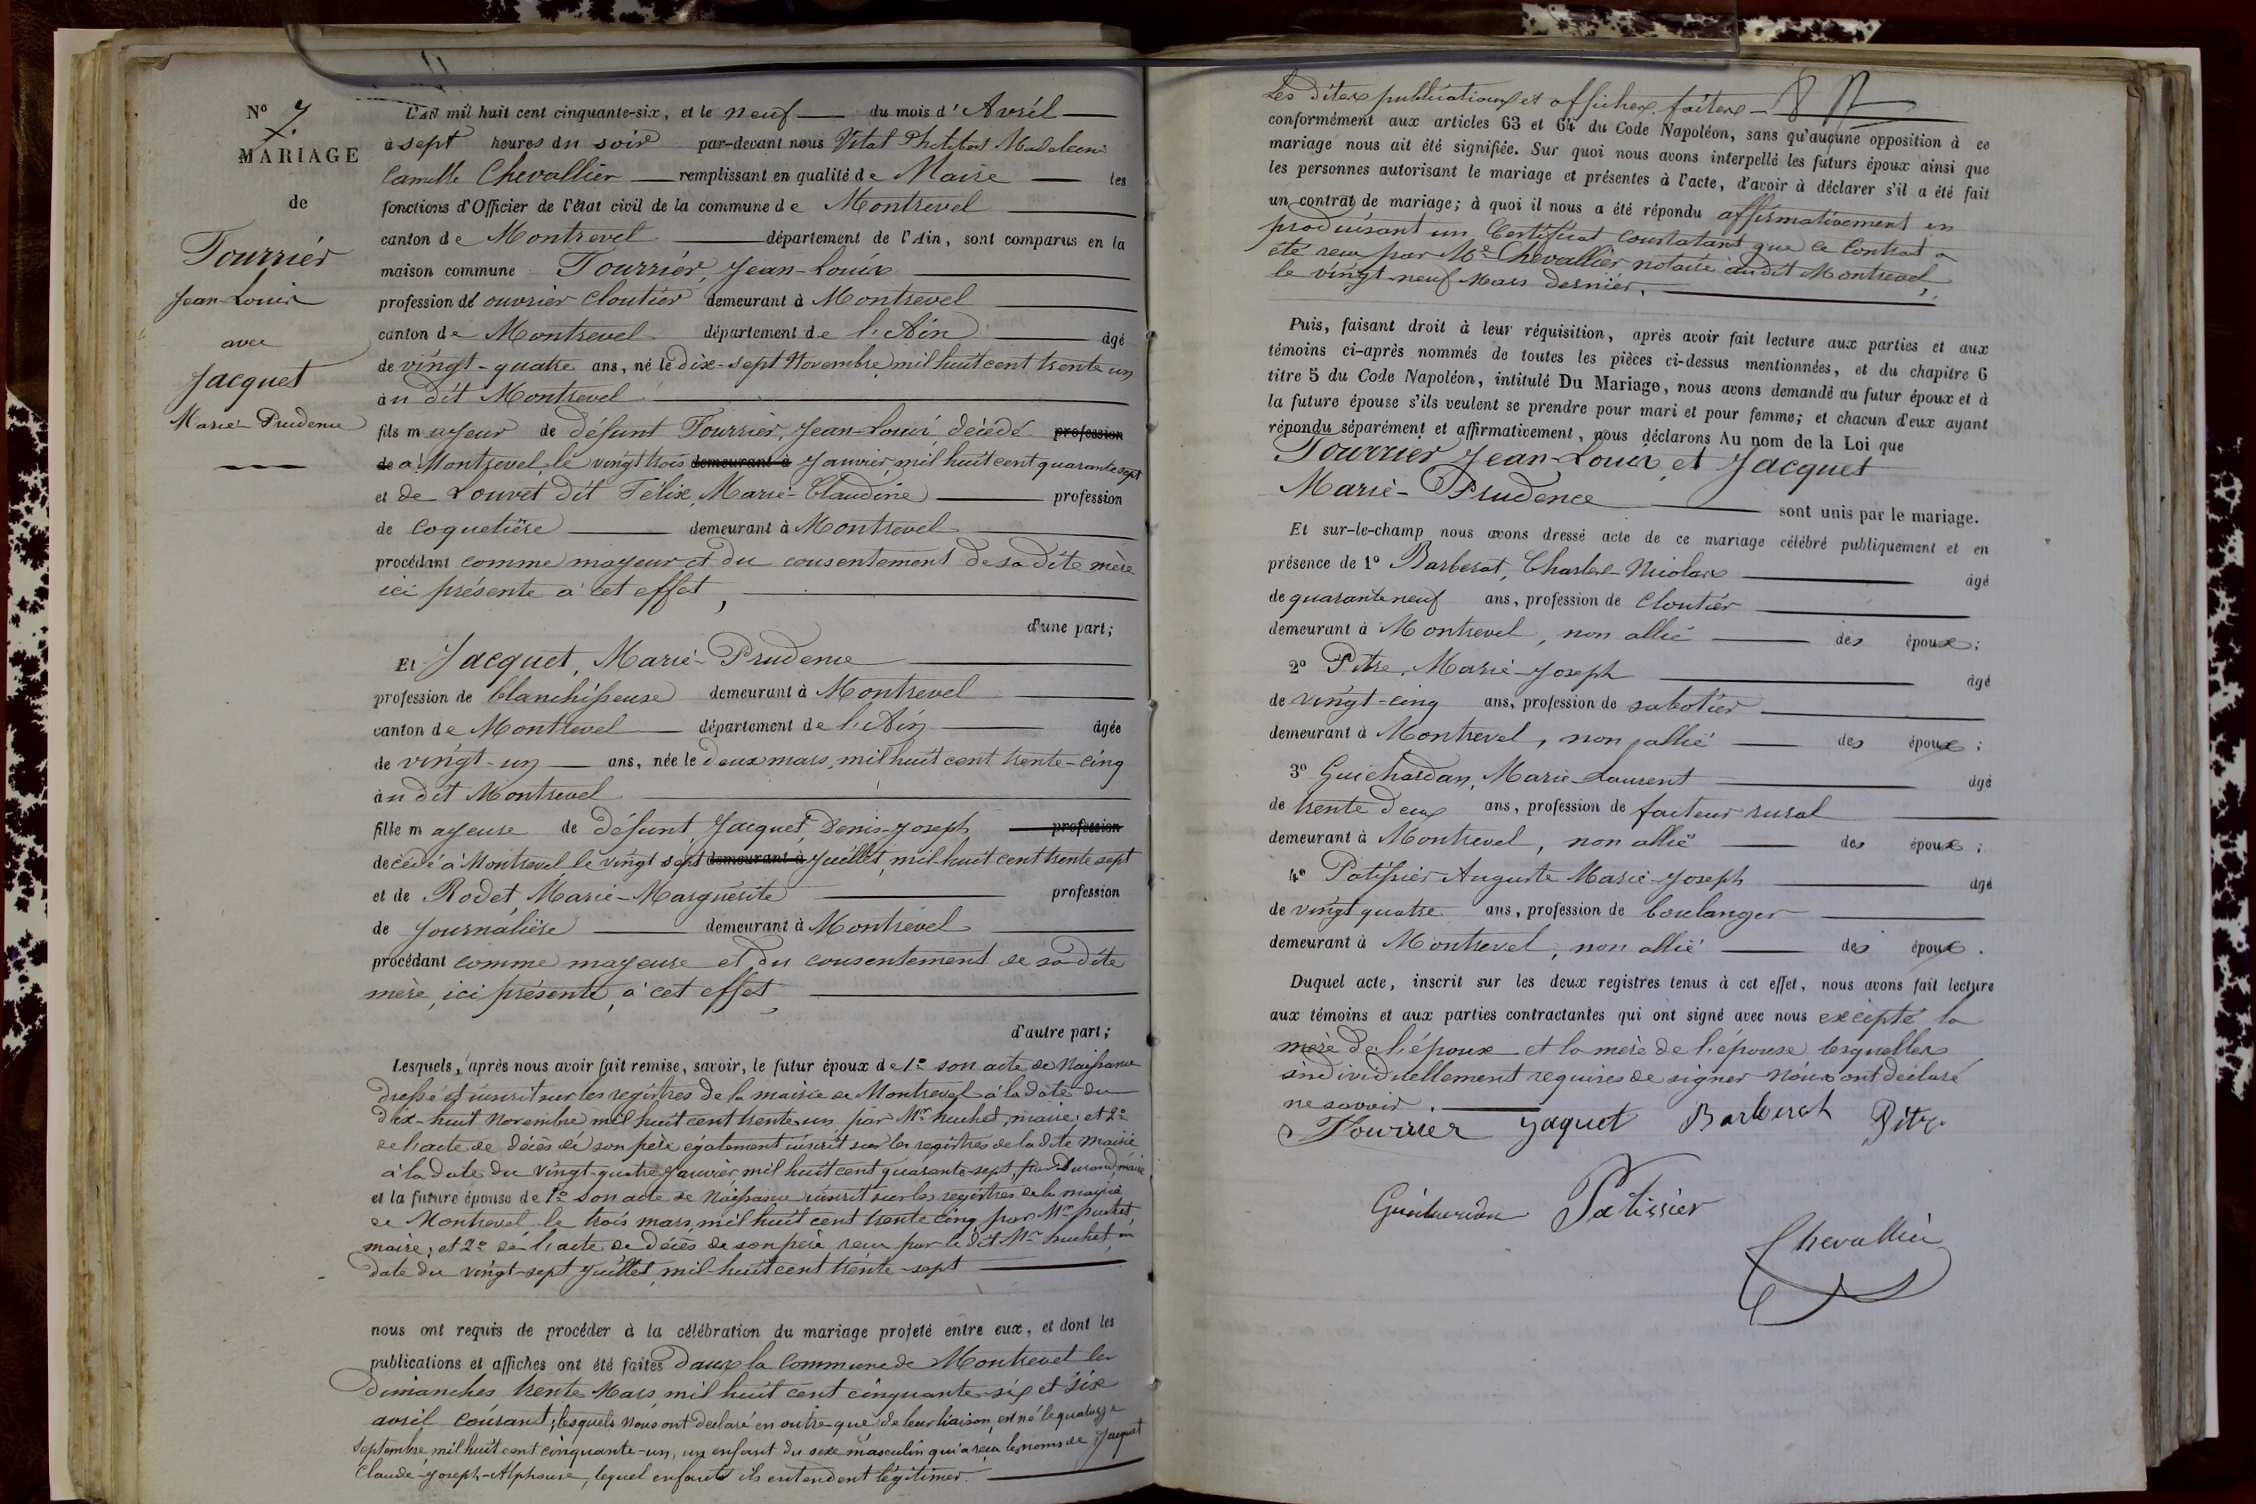 Nº 7.
MARIAGE
de
Fourrier
Jean-Louis
avec
Jacquet
Marie-Prudence
L'AN mil huit cent cinquante-six, et le neuf du mois d'Avril
à sept heures du soir par-devant nous Vital Philibert Madeleine
Camille Chevallier remplissant en qualité de Maire les
fonctions d'Officier de l'état civil de la commune de Montrevel
canton de Montrevel département de l'Ain, sont comparus en la
maison commune Fourrier, Jean-Louis
profession de ouvrier cloutier demeurant à Montrevel
canton de Montrevel département de l'Ain âgé
de vingt-quatre ans, né le dix-sept Novembre, mil huit cent trente un
au dit Montrevel
fils mayeur de défunt Fourrier, Jean-Louis, décédé profession
de à Montrevel, le vingt trois demeurant à Janvier, mil huit cent quarante sept
et de Louvet dit Félix, Marie-Claudine profession
de coquetière demeurant à Montrevel
procédant comme mayeur et du consentement de sa dite mère
ici présente à cet effet,
d'une part;
Et Jacquet, Marie-Prudence
profession de blanchisseuse demeurant à Montrevel
canton de Montrevel département de l'Ain âgée
de vingt-un ans, née le deux mars, mil huit cent trente-cinq
au dit Montrevel
fille mayeure de défunt Jacquet, Denis-Joseph profession
décédé à Montrevel, le vingt sept demeurant à Juillet, mil huit cent trente sept
et de Rodet, Marie-Marguerite profession
de Journalière demeurant à Montrevel
procédant comme mayeure et du consentement de sa dite
mère, ici présente, à cet effet,
d'autre part;
Lesquels, après nous avoir fait remise, savoir, le futur époux de 1º son acte de Naissance
dressé et inscrit sur les registres de la mairie de Montrevel à la date du
dix-huit Novembre mil huit cent trente un, par Mr huchet, maire; et 2º
de l'acte de décès de son père également inscrit sur les registres de la dite Mairie
à la date du vingt-quatre Janvier, mil huit cent quarante-sept, par Durand, maire
et la future épouse de 1º son acte de Naissance inscrit sur les registres de la mairie
de Montrevel le trois mars, mil huit cent trente cinq, par Mr huchet
maire; et 2º de l'acte de décès de son père, reçu par le dit Mr huchet, en
date du vingt-sept Juillet, mil huit cent trente-sept
nous ont requis de procéder à la célébration du mariage projeté entre eux, et dont les
publications et affiches ont été faites dans la Commune de Montrevel les
dimanches trente Mars mil huit cent cinquante-six et six
avril courant; lesquels Nous ont déclaré en outre que de leur liaison, est né le quatorze
Septembre, mil huit cent cinquante-un, un enfant du sexe masculin qui a reçu les noms de Jacquet
Claude-Joseph-Alphonse, lequel enfant ils entendent légitimer.
Les dites publications et affiches faites
conformément aux articles 63 et 64 du Code Napoléon, sans qu'aucune opposition à ce
mariage nous ait été signifiée. Sur quoi nous avons interpellé les futurs époux ainsi que
les personnes autorisant le mariage et présentes à l'acte, d'avoir à déclarer s'il a été fait
un contrat de mariage; à quoi il nous a été répondu affirmativement en
produisant un Certificat constatant que ce Contrat a
été reçu par Me Chevallier notaire au dit Montrevel,
le vingt-neuf Mars dernier.
Puis, faisant droit à leur réquisition, après avoir fait lecture aux parties et aux
témoins ci-après nommés de toutes les pièces ci-dessus mentionnées, et du chapitre 6
titre 5 du Code Napoléon, intitulé Du Mariage, nous avons demandé au futur époux et à
la future épouse s'ils veulent se prendre pour mari et pour femme; et chacun d'eux ayant
répondu séparément et affirmativement, nous déclarons Au nom de la Loi que
Fourrier Jean-Louis, et Jacquet
Marie-Prudence sont unis par le mariage.
Et sur-le-champ nous avons dressé acte de ce mariage célébré publiquement et en
présence de 1º Barberat, Charles-Nicolas âgé
de quarante neuf ans, profession de Cloutier
demeurant à Montrevel, non allié des époux;
2º Pitre, Marie-Joseph âgé
de vingt-cinq ans, profession de sabotier
demeurant à Montrevel, non allié des époux;
3º Guichardan, Marie-Laurent âgé
de trente deux ans, profession de facteur rural
demeurant à Montrevel, non allié des époux;
4º Patissier Auguste Marie-Joseph âgé
de vingt quatre ans, profession de boulanger
demeurant à Montrevel, non allié des époux.
Duquel acte, inscrit sur les deux registres tenus à cet effet, nous avons fait lecture
aux témoins et aux parties contractantes qui ont signé avec nous excepté la
mère de l'époux et la mère de l'épouse lesquelles
individuellement requises de signer Nous ont déclaré
ne savoir.
Fourrier Jaquet Barberat Pitre
Guichardan Patissier
Chevallier